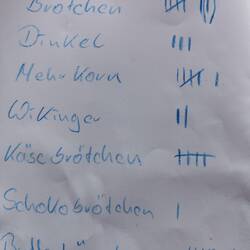 Brötchen
Dinkel
Mehrkorn
Wikinger
Käsebrötchen
Schokobrötchen